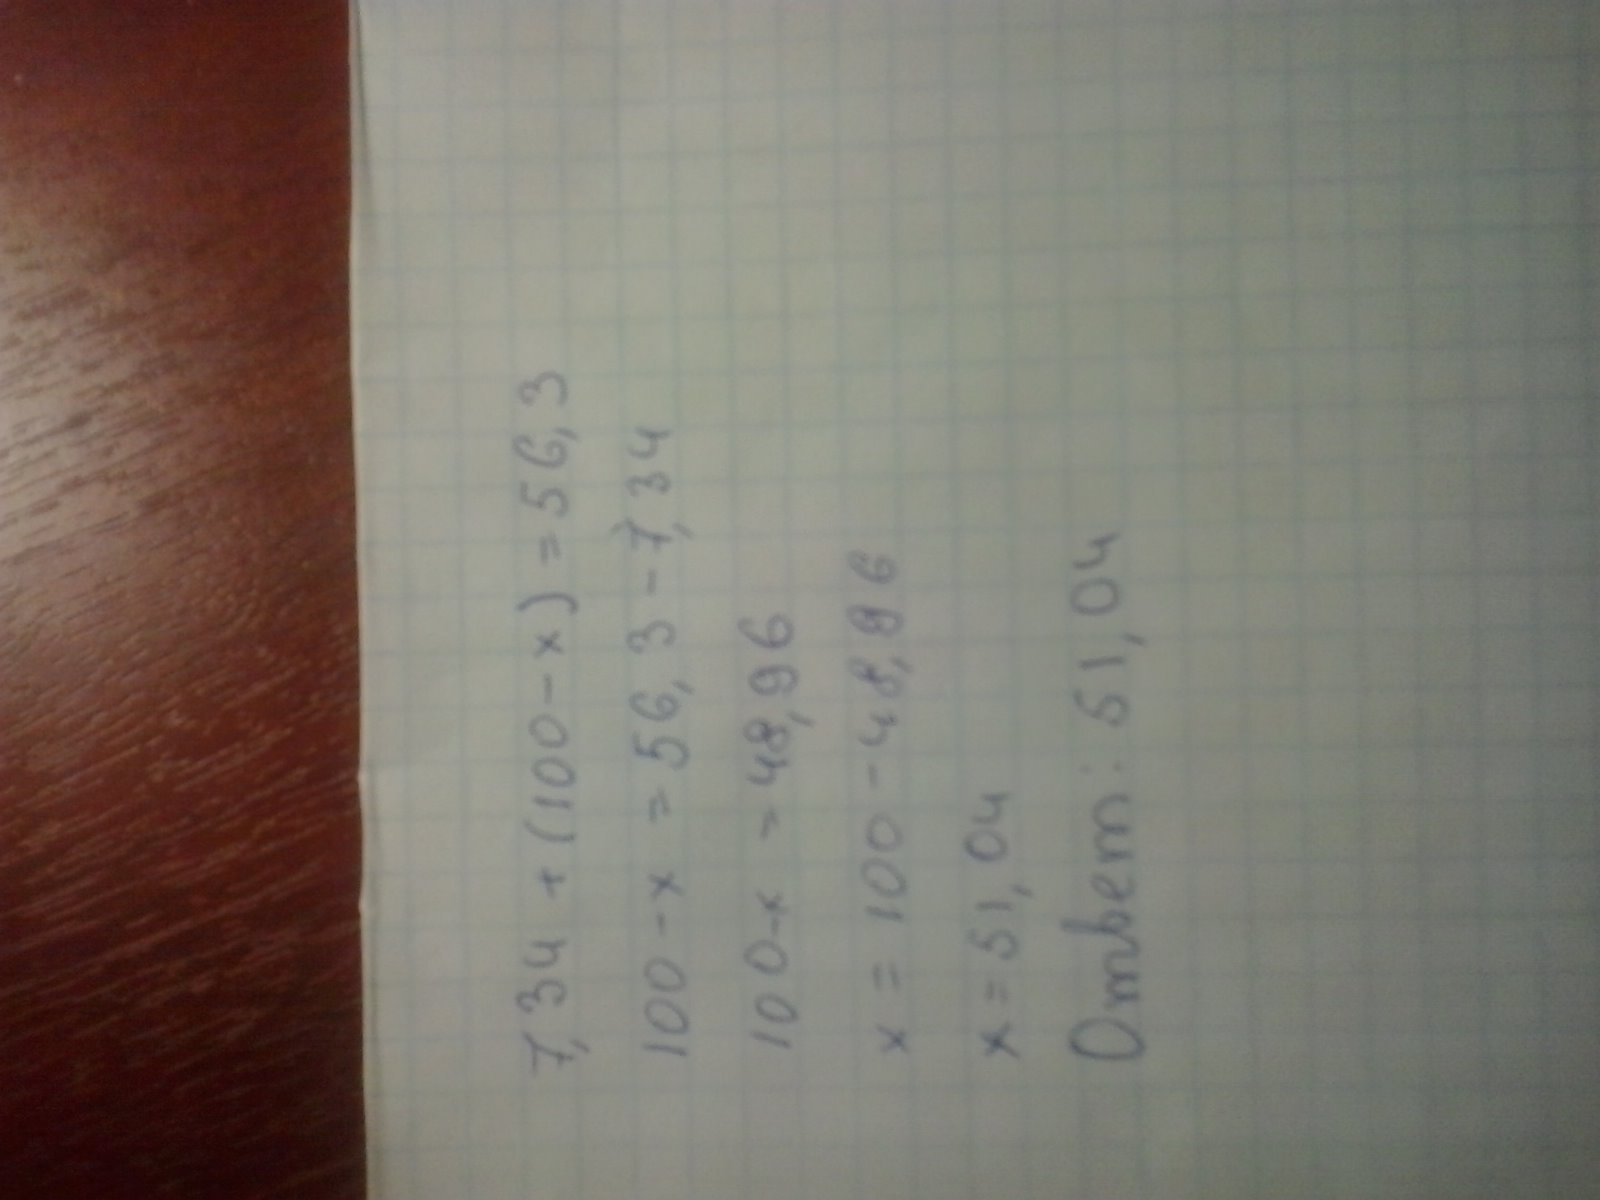 7,34 + (100 - x) = 56,3
100 - x = 56,3 - 7,34
100 - x = 48,96
x = 100 - 48,96
x = 51,04
Ответ: 51,04